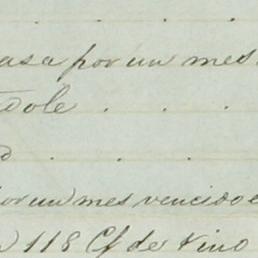 asa por un mes
dole . . .
por un mes vencido e
118 Cf de vino